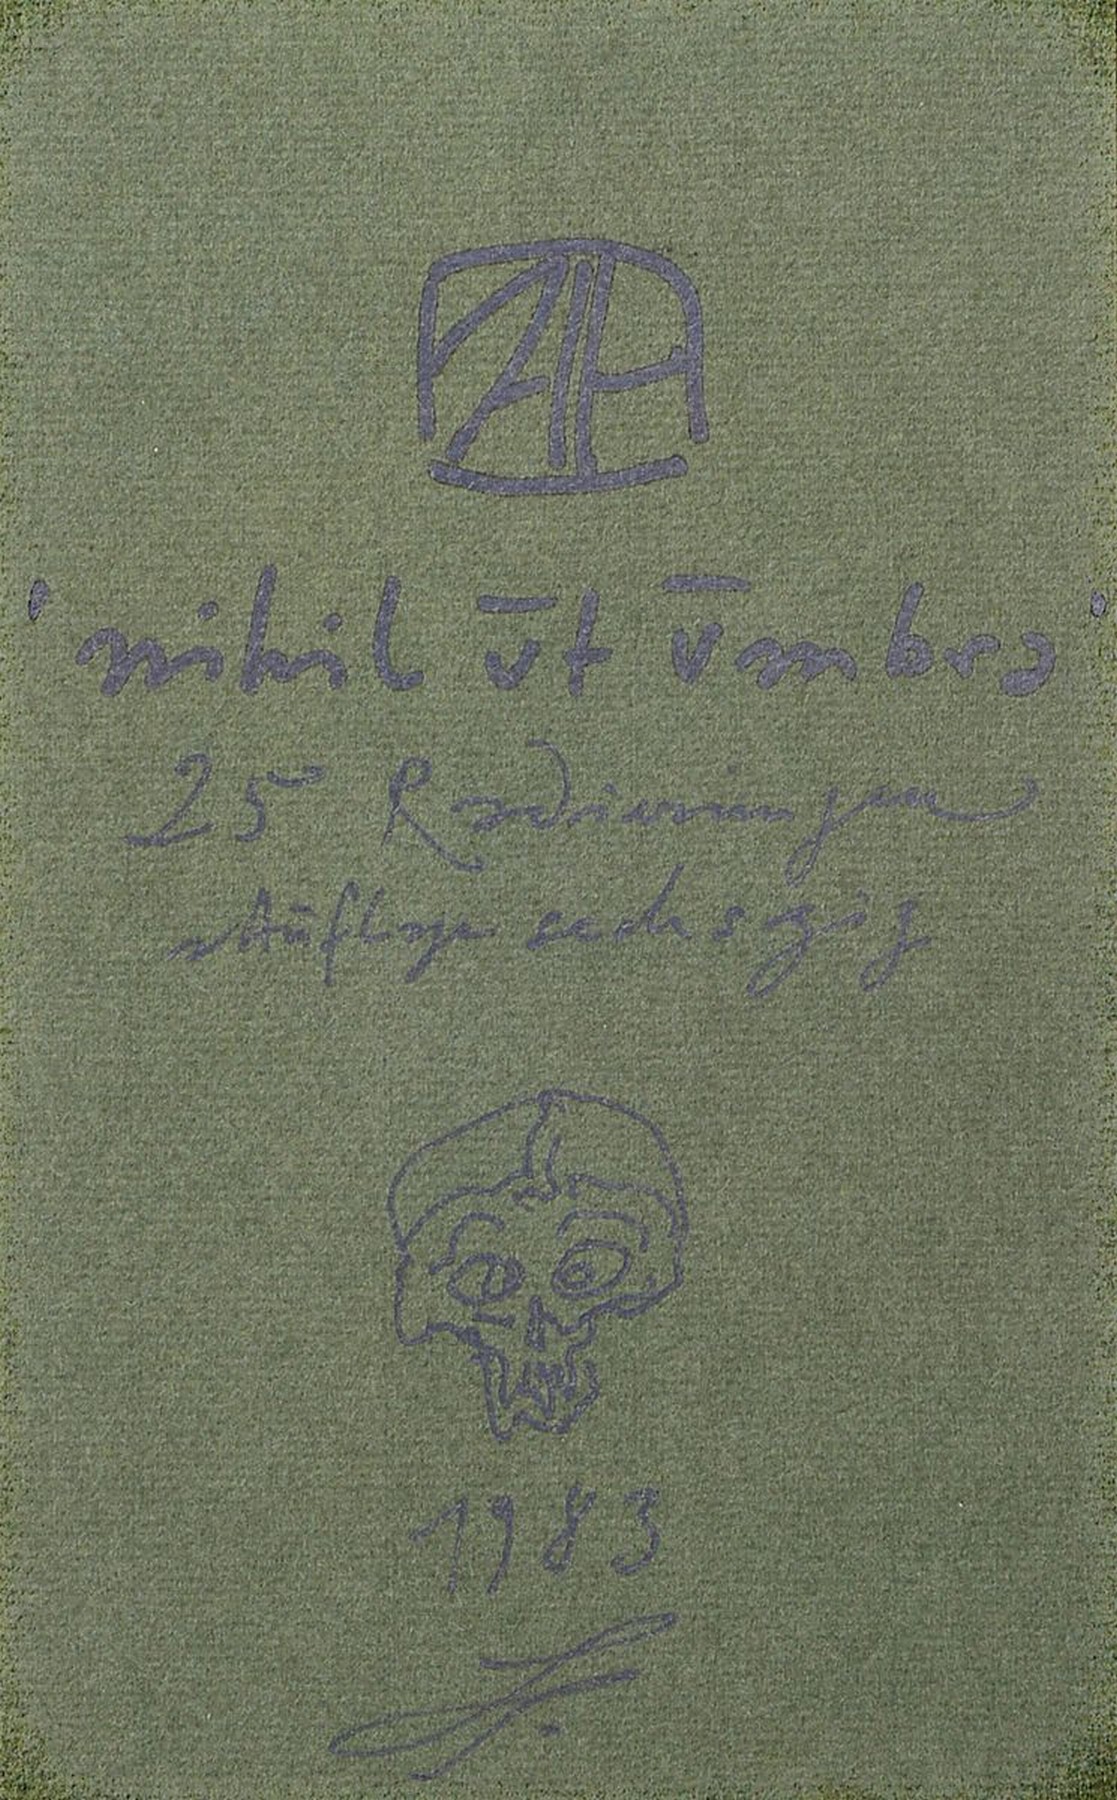 'nihil ūt ūmbra'
25 Radierungen
Auflage sechszig
1983